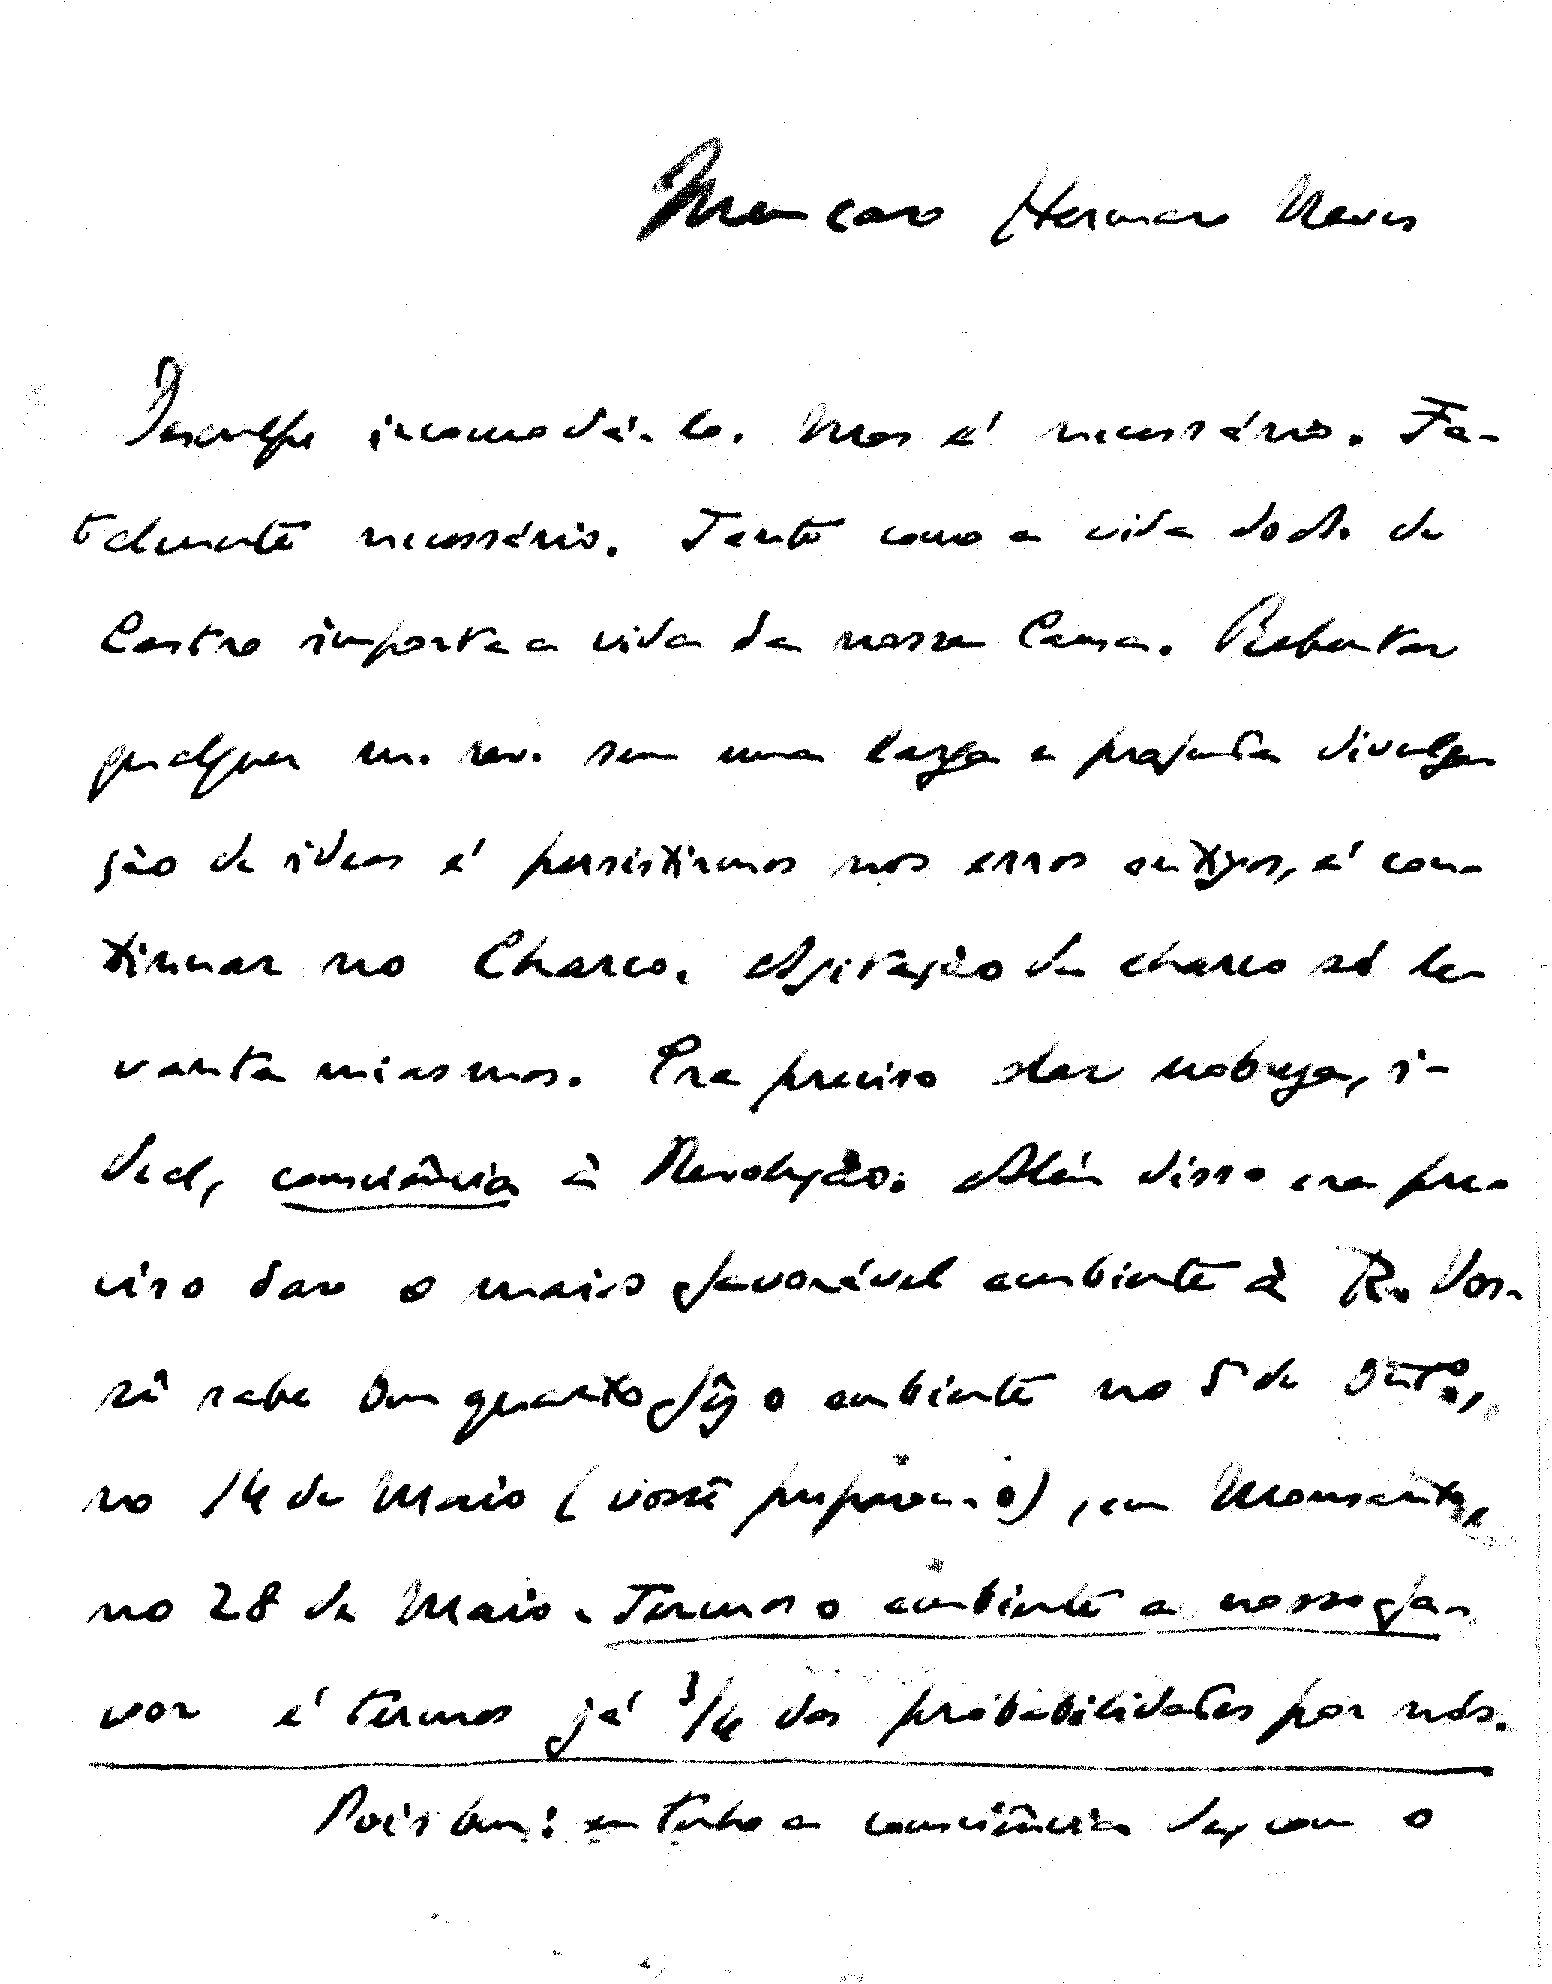 Meu caro Hermano Neves
Desculpe incomodá-lo. Mas é necessário. Fa-
talmente necessário. Tanto como a vida do A. de
Castro importa a vida da nossa Causa. Rebentar
qualquer m. rev. sem uma larga e profunda divulga
ção de ideas é persistirmos nos erros antigos, é con-
tinuar no Charco. Agitação de charco só le
vanta miasmas. Era preciso dar nobreza, i-
deal, consciência à Revolução. Além disso era pre
ciso dar o mais favorável ambiente à R. Vo-
sê sabe bem quanto fêz o ambiente no 5 de Outº,
no 14 de Maio (você preparou-o), em Monsanto,
no 28 de Maio. Termos o ambiente a nosso fa-
vor é termos já 3/4 das probabilidades por nós.
Pois bem: eu tenho a consciência de, com o